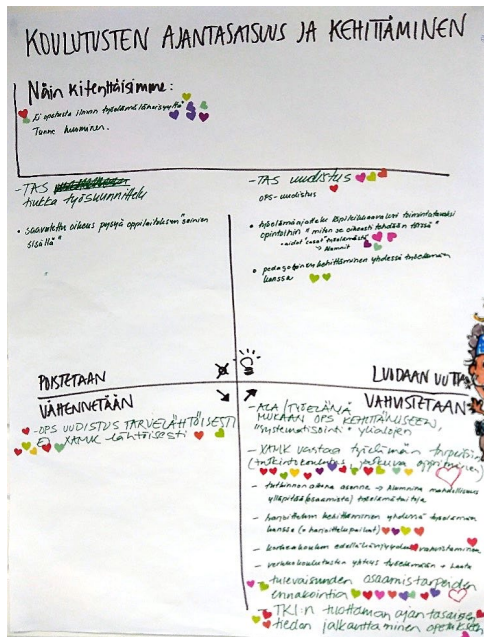 KOULUTUSTEN AJANTASAISUUS JA KEHITTÄMINEN
Näin kiteyttäisimme:
Ei opetusta ilman työelämäläheisyyttä
Tunne huominen.
-TAS
tiukka työsuunnittelu
• saavutettu oikeus pysyä oppilaitoksen "seinien
sisällä"
-TAS uudistus
OPS-uudistus
• työelämäajattelu läpileikkaavaksi toimintatavaksi
opintoihin "miten se oikeasti tehdään töissä"
-aidot "caset" työelämästä
Alumnit
• pedagoginen kehittäminen yhdessä työelämän
kanssa
POISTETAAN
LUODAAN UUTTA
VÄHENNETÄÄN
VAHVISTETAAN
-OPS UUDISTUS TARVELÄHTÖISESTI
EI XAMK lähtöisesti
-ALA/TYÖELÄMÄ
MUKAAN OPS KEHITTÄMISEEN,
"systematisointi" yli alojen
-XAMK vastaa työelämän tarpeisiin
(tutkintokoulutus, jatkuva oppiminen)
- tutkinnon aikana asenne Alumnina mahdollisuus
ylläpitää (osaamista) työelämätaitoja
- harjoittelun kehittäminen yhdessä työelämän
kanssa (+ harjoittelupaikat)
- korkeakoulun edelläkävijyyden vahvistaminen
- verkkokoulutusten yhteys työelämään + laatu
- tulevaisuuden osaamistarpeiden
ennakointia
- TKI:n tuottaman ajantasaisen
tiedon jalkauttaminen opetukseen